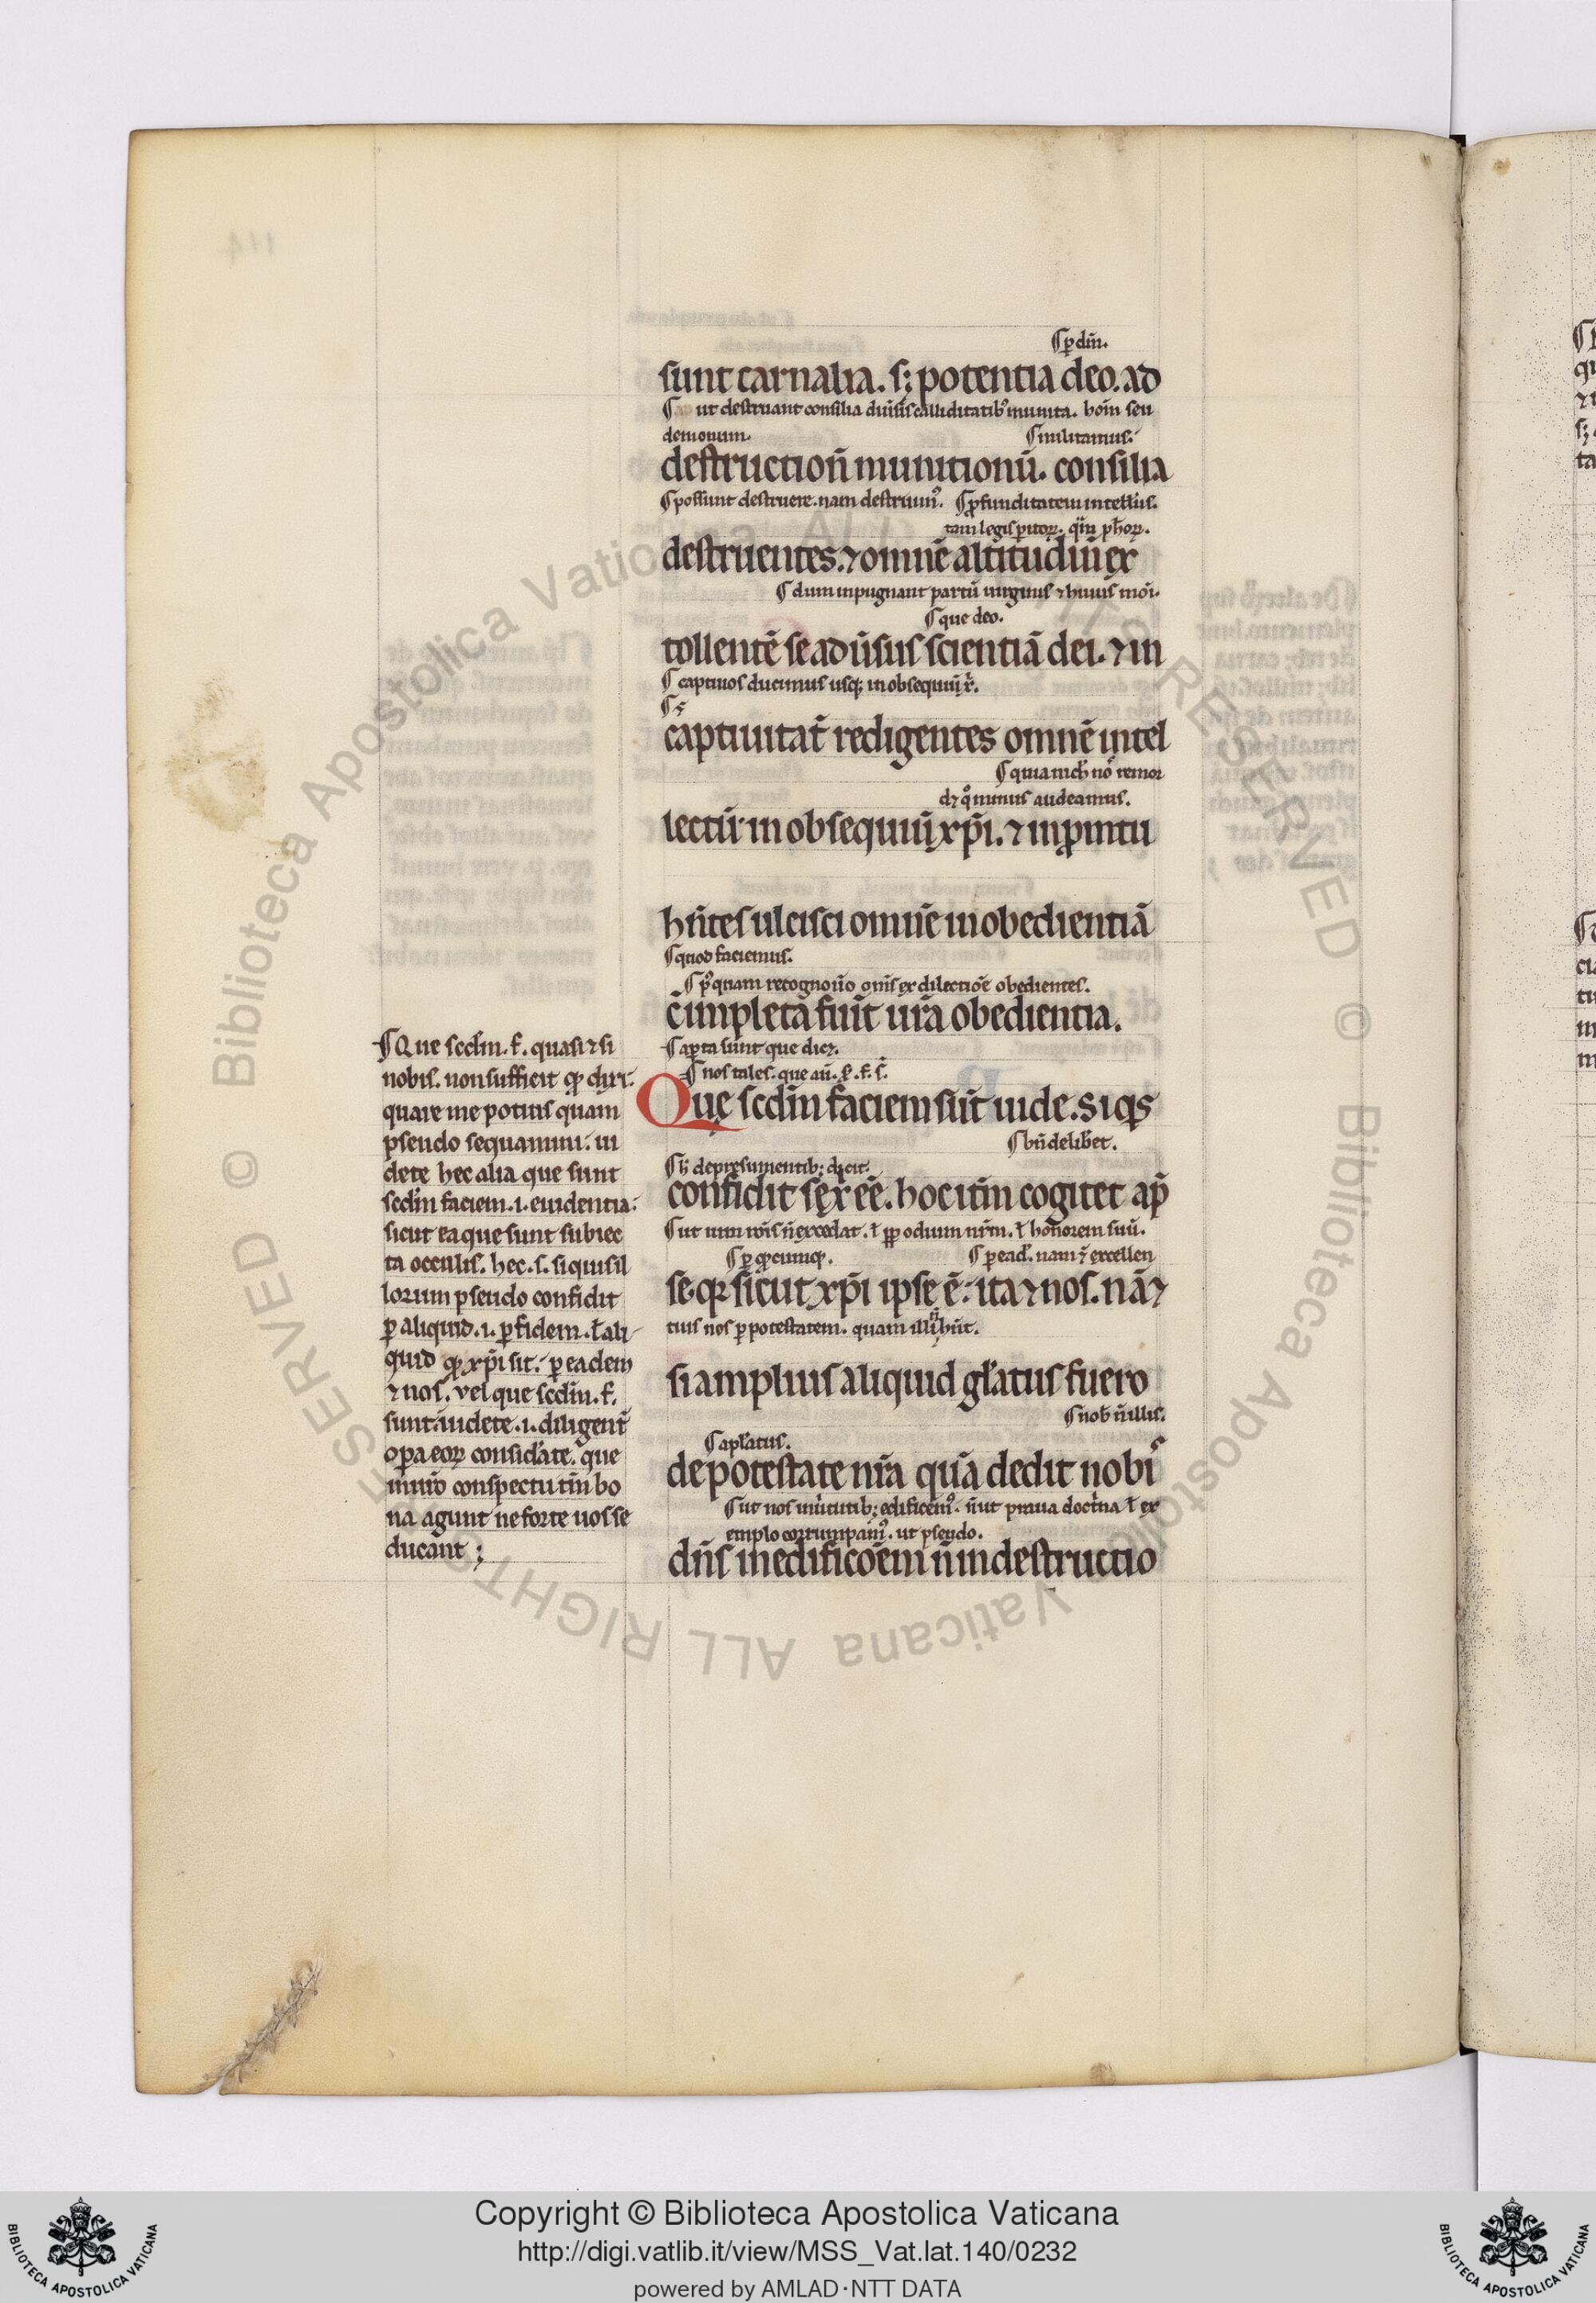 ¶ p̄ dm̄.
sunt carnalia. s; potentia deo. ad
¶ ut destruant consilia diuīsis calliditatib; munita. hoīm seu
demonum. ¶ militamus.
destructionē munitionū. consilia
¶ possunt destruere. nam destruim᷒. ¶ ꝓfunditatem intellꝰ.
tam legis peritoꝝ. qͣm phoꝝ.
destruentes. ⁊ omnē altitudinē ex
¶ dum inpugnant partū uirginis ⁊ huiusmōi.
¶ que deo.
tollentē se aduersus scientiā dei. ⁊ in
¶ captiuos ducimus usq; in obsequiū xp̄i.
captiuitatē redigentes omnē intel
¶ quia nich̄ nō remor
det qͦminus audeamus.
lectū in obsequiū xp̄i. ⁊ in ꝓmptu
hn̄tes ulcisci omnē inobedientiā
¶ quod faciemus.
¶ pͦquam recognouo om̄s ex dilectiōe obedientes.
cū impleta fuīt ur̄a obedientia.
¶ aꝑta sunt que dicꝫ.
¶ nos tales. que aū. s. f. s.
Que scdm̄ faciem sūt uidete. Si qͥs
¶ bn̄ deliberet.
¶ h̄ de presumentib; dicit.
confidit se xp̄i eē. hoc itm̄ cogitet ap̄
¶ ut nim ... n̄ excedat. ł ꝓp odium nr̄m. ł honorem suū.
¶ ꝑ qͦdcumq;. ¶ ꝑ ead̄. nam ⁊ excellen
se. qꝛ sicut xp̄i ipse ē. ita ⁊ nos. nā ⁊
tius nos ꝑ potestatem. quam illi n̄ hn̄t.
si amplius aliquid gl̄atus fuero
¶ nob̄ n̄ illis.
¶ apl̄atus.
de potestate nr̄a quā dedit nobis
¶ ut nos uirtutib; edificem᷒. n̄ ut praua doctͥna ł ex
emplo corrumpam᷒. ut pseudo.
dn̄s in edificōem n̄ in destructio
¶ Que scdm. f. quasi ⁊ si
nobis. non sufficit qͦd dixi.
quare me potius quam
pseudo sequamini. ui
dete hec alia que sunt
scdm̄ faciem .i. euidentia.
sicut ea que sunt subiec
ta occulis. hec. s. si quis il
lorum pseudo confidit
ꝑ aliquid .i. ꝑ fidem. ł ali
quid qͦd xp̄i sit. ꝑ eadem
⁊ nos. vel que scdm̄. f.
sunt uidete .i. diligent̄
opa eoꝝ considerate. que
in ur̄o conspectu tm̄ bo
na agunt ne forte uos se
ducant ;
Copyright © Biblioteca Apostolica Vaticana
http://digi.vatlib.it/view/MSS_Vat.lat.140/0232
powered by AMLAD·NTT DATA